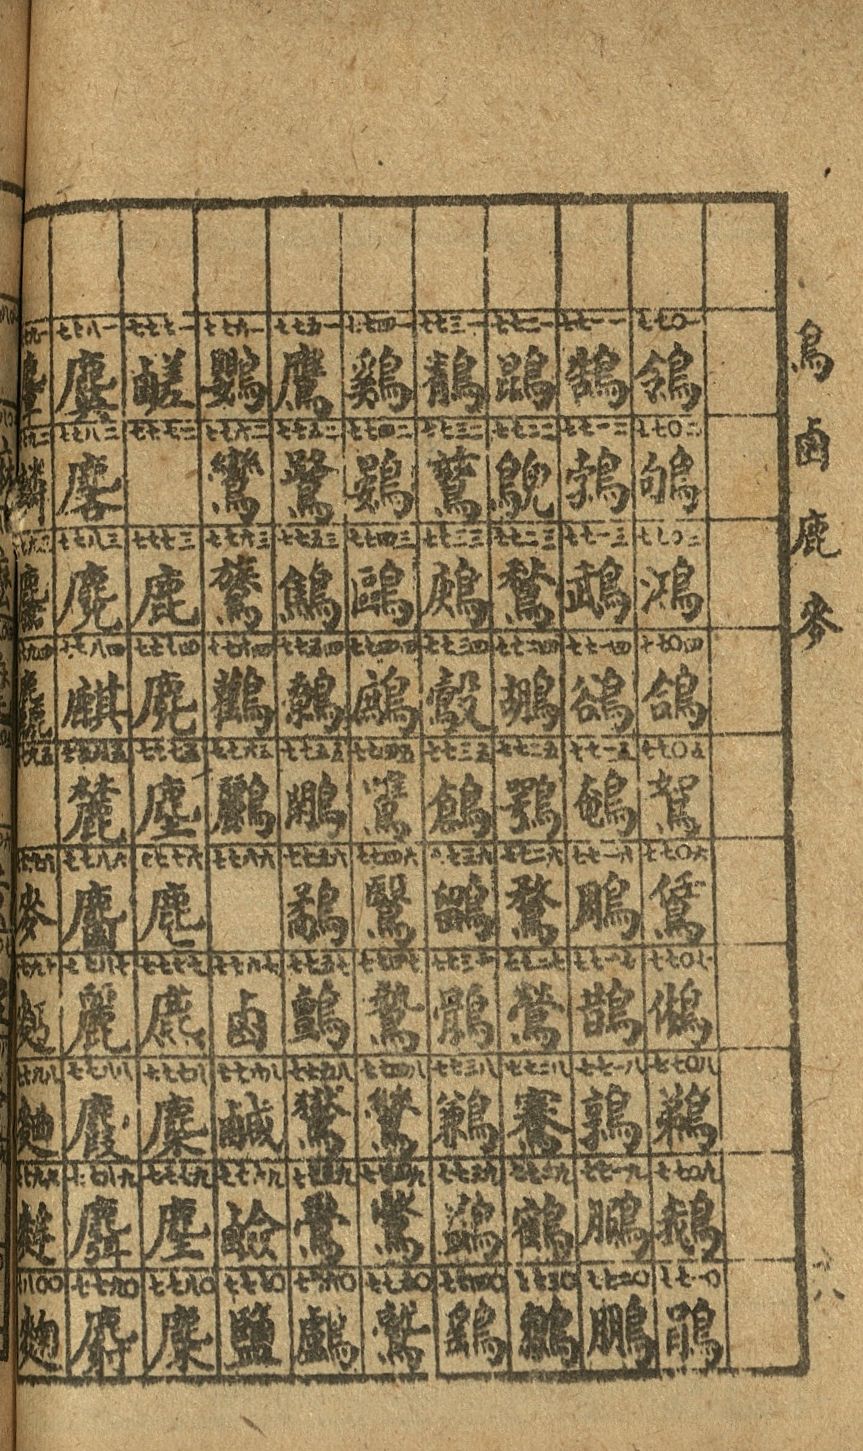 鳥鹵鹿麥
七七〇一 鴒 七七〇二 鴝 七七〇三 鴻 七七〇四 鴿 七七〇五 鴽 七七〇六 鵀 七七〇七 鵂 七七〇八 鵜 七七〇九 鵝 七七一〇 鵑
七七一一 鵠 七七一二 鵓 七七一三 鵡 七七一四 鵒 七七一五 鵪 七七一六 鵰 七七一七 鵲 七七一八 鶉 七七一九 鵩 七七二〇 鵬
七七二一 鵾 七七二二 鶃 七七二三 鶖 七七二四 鶘 七七二五 鶚 七七二六 鶩 七七二七 鶯 七七二八 鶱 七七二九 鶴 七七三〇 鶵
七七三一 鶄 七七三二 七七三三 七七三四 鷇 七七三五 鶬 七七三六 鶹 七七三七 鶻 七七三八 鶼 七七三九 鷁 七七四〇 鷂
七七四一 鷄 七七四二 鷃 七七四三 鷗 七七四四 鷓 七七四五 七七四六 鷖 七七四七 鷙 七七四八 七七四九 七七五〇 鷲
七七五一 鷹 七七五二 鷺 七七五三 鷦 七七五四 七七五五 鷳 七七五六 鷸 七七五七 鸇 七七五八 七七五九 鷽 七七六〇 鸕
七七六一 鸚 七七六二 鸞 七七六三 七七六四 鸛 七七六五 鸝 七七六六 七七六七 鹵 七七六八 鹹 七七六九 鹼 七七七〇 鹽
七七七一 鹺 七七七二 七七七三 鹿 七七七四 麂 七七七五 麈 七七七六 麀 七七七七 麃 七七七八 七七七九 七七八〇 麋
七七八一 麌 七七八二 七七八三 麑 七七八四 麒 七七八五 麓 七七八六 麕 七七八七 麗 七七八八 麚 七七八九 麛 七七九〇 麝
麞 麟 麤 麥 麴